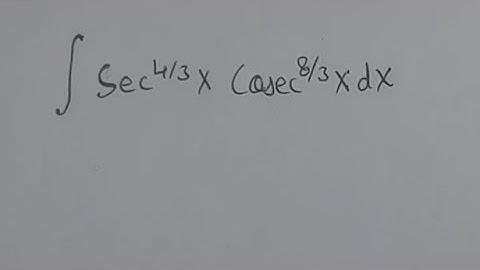 ∫ Sec^4/3 x Cosec^8/3 x dx